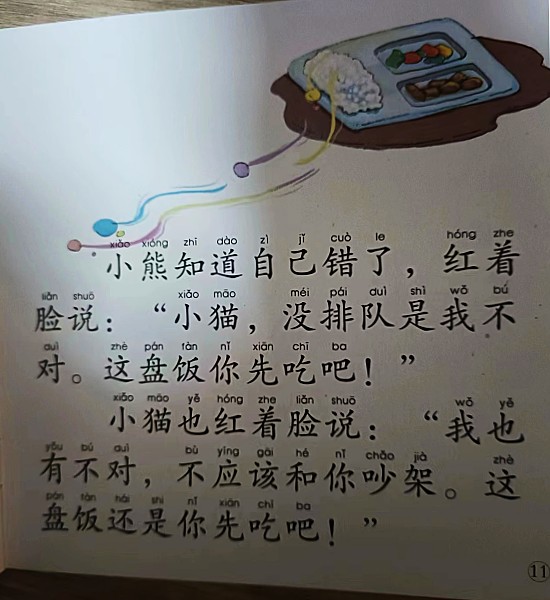 xiǎo xióng zhī dào zì jǐ cuò le hóng zhe
小熊知道自己错了，红着
liǎn shuō xiǎo māo méi pái duì shì wǒ bú
脸说：“小猫，没排队是我不
duì zhè pán fàn nǐ xiān chī ba
对。这盘饭你先吃吧！”
xiǎo māo yě hóng zhe liǎn shuō wǒ yě
小猫也红着脸说：“我也
yǒu bú duì bù yīng gāi hé nǐ chǎo jià zhè
有不对，不应该和你吵架。这
pán fàn hái shi nǐ xiān chī ba
盘饭还是你先吃吧！”
11